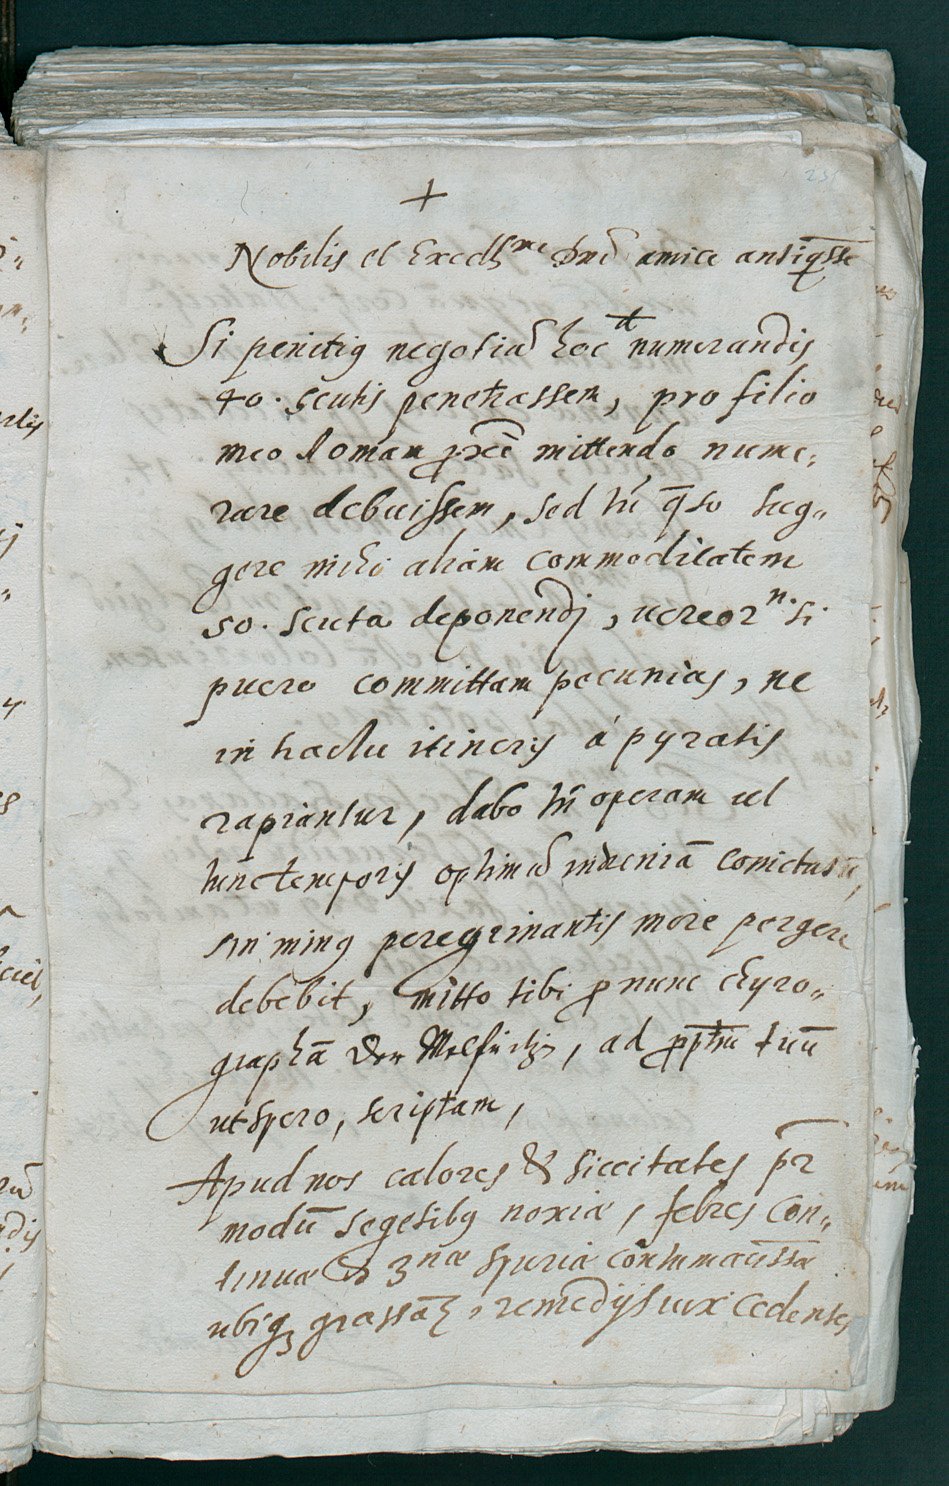 +
Nobilis et Excell^me Dn̄e amice antiq̄ss̄e
Si penitiꝯ negotiū hoc numerandis
40. scutis penetrassem, pro filio
meo Romam p̄xiē mittendo nume,
rare debuissem, sed tn̄ q̄so sug,,
gere mihi aliam commoditatem
50. scuta deponendj, uereor n. si
puero committam pecunias, ne
in tractu itineris á pyratis
rapiantur, dabo tn̄ operam ut
hinc temporis optimū inueniā comitatū,
sin minꝯ peregrinantis more pergere
debebit, mitto tibi ꝓ nunc chyro,,
graphā Der, ad tuū
ut spero, scriptam,
Apud nos calores & siccitates p̄r
modū segetibꝯ noxiæ, febres con,,
tinuæ & 3^næ spuriæ contumaciss̄æ
ubiqꝫ grassāt, remedijs uix cedentes